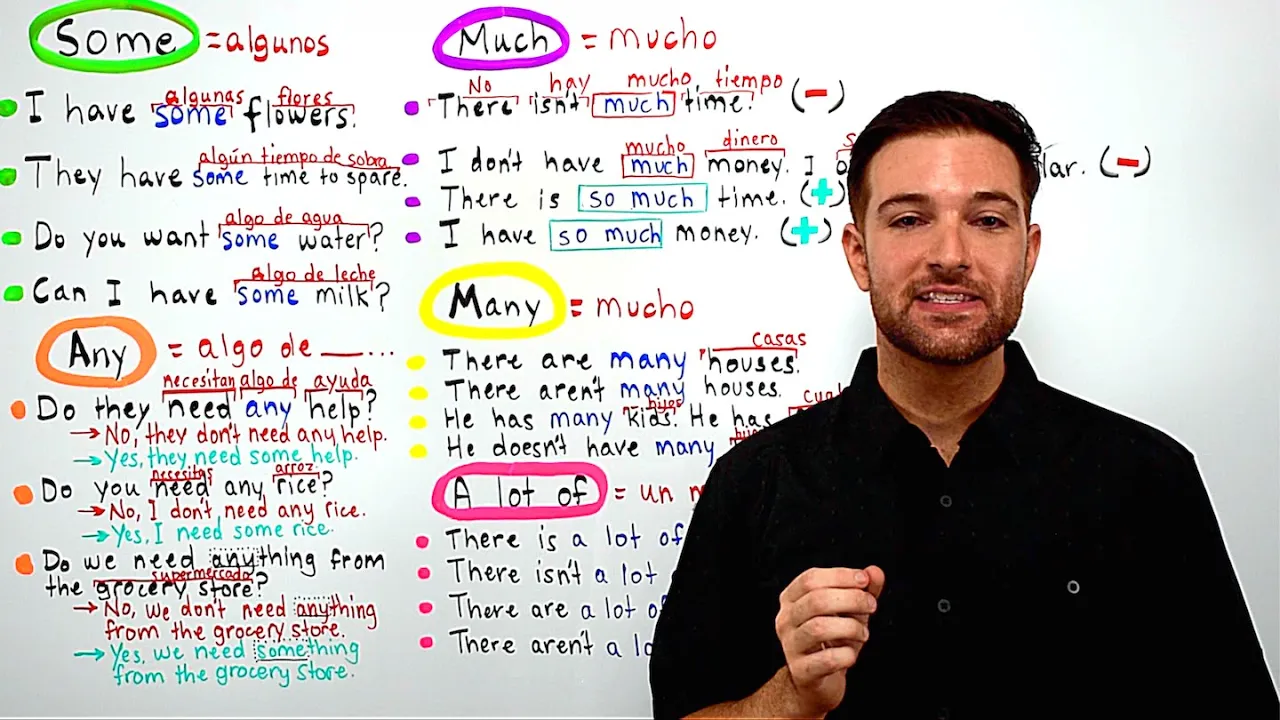 Some = algunos
algunas flores
I have some flowers.
algún tiempo de sobra
They have some time to spare.
algo de agua
Do you want some water?
algo de leche
Can I have some milk?
Any = algo de ___...
necesitan algo de ayuda
Do they need any help?
→ No, they don't need any help.
→ Yes, they need some help.
necesitas arroz
Do you need any rice?
→ No, I don't need any rice.
→ Yes, I need some rice.
Do we need anything from
supermercado
the grocery store?
→ No, we don't need anything
from the grocery store.
→ Yes, we need something
from the grocery store.
Much = mucho
No hay mucho tiempo
There isn't much time. (-)
mucho dinero
I don't have much money. I lar. (-)
There is so much time. (+)
I have so much money. (+)
Many = mucho
casas
There are many houses.
There aren't many houses.
hijos
He has many kids. He has
He doesn't have many
A lot of = un
There is a lot of
There isn't a lot
There are a lot of
There aren't a lo